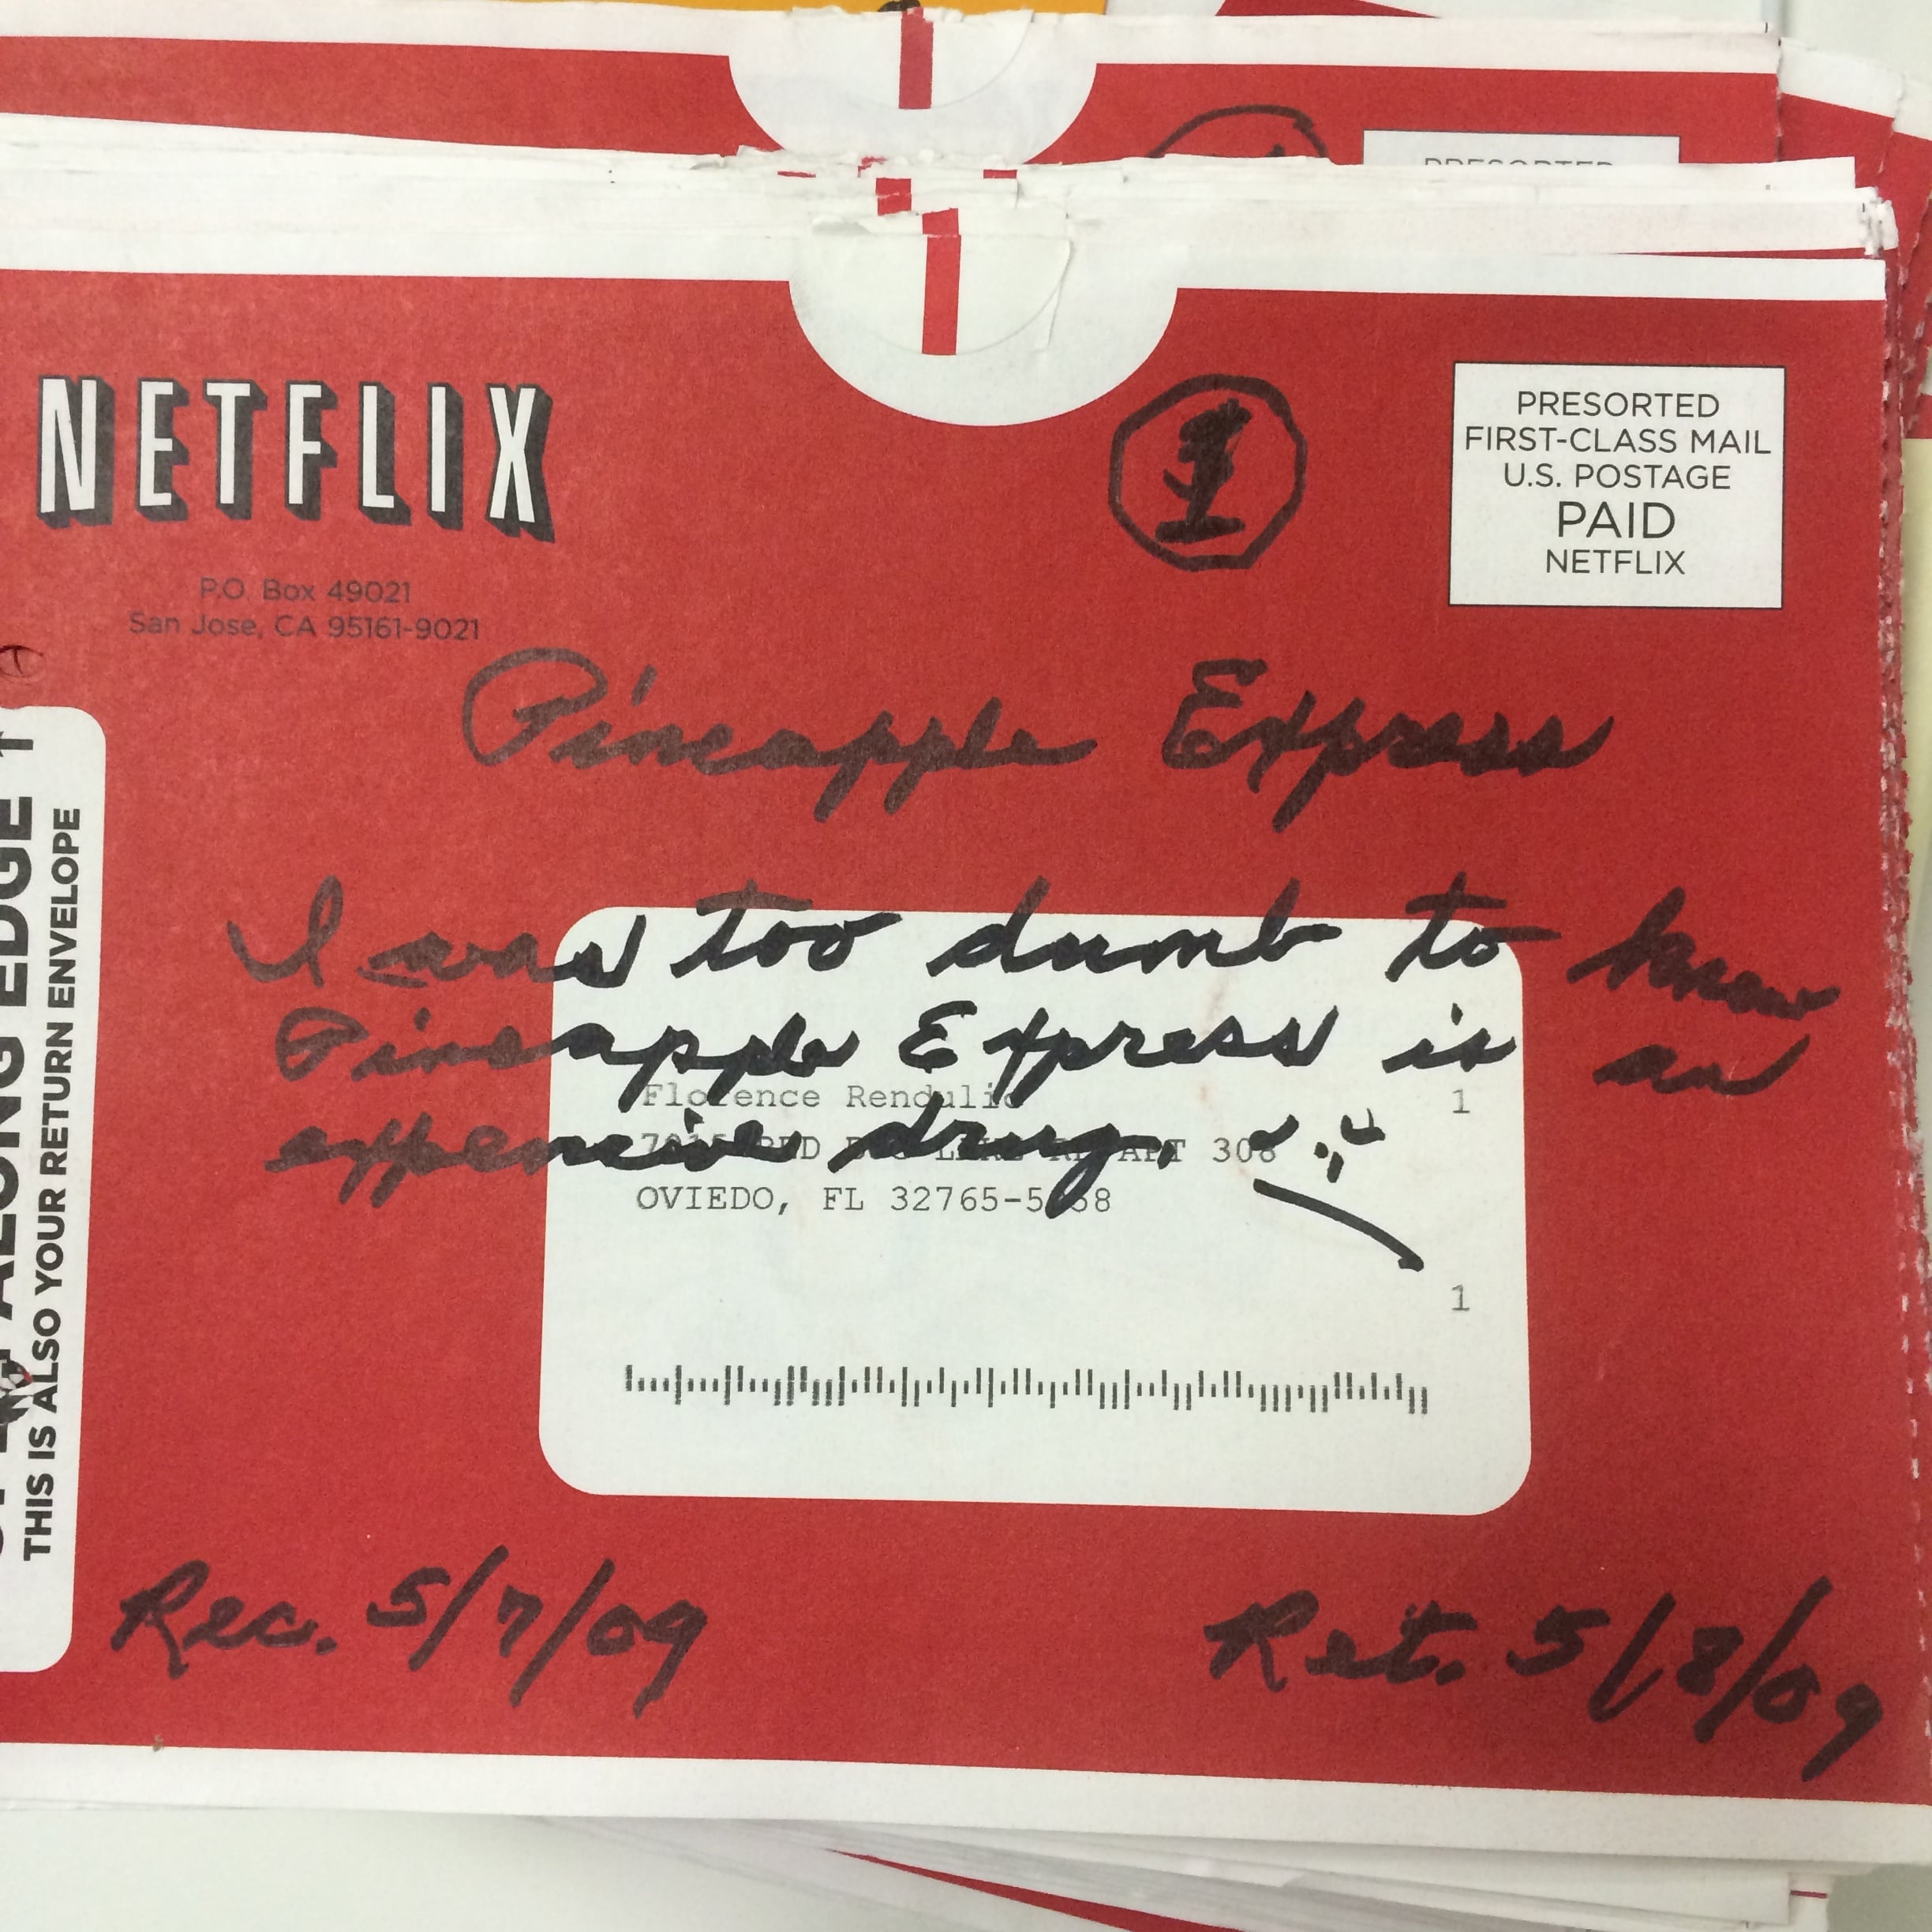 PRESORTED
NETFLIX
P.O. Box 49021
San Jose, CA 95161-9021
1
PRESORTED
FIRST-CLASS MAIL
U.S. POSTAGE
PAID
NETFLIX
Pineapple Express
I was too dumb to know
Pineapple Express is an
expensive drug.
Florence Rendulic 1
RED APT 308
OVIEDO, FL
1
ALONG EDGE
THIS IS ALSO YOUR RETURN ENVELOPE
Rec. 5/7/09
Ret. 5/8/09